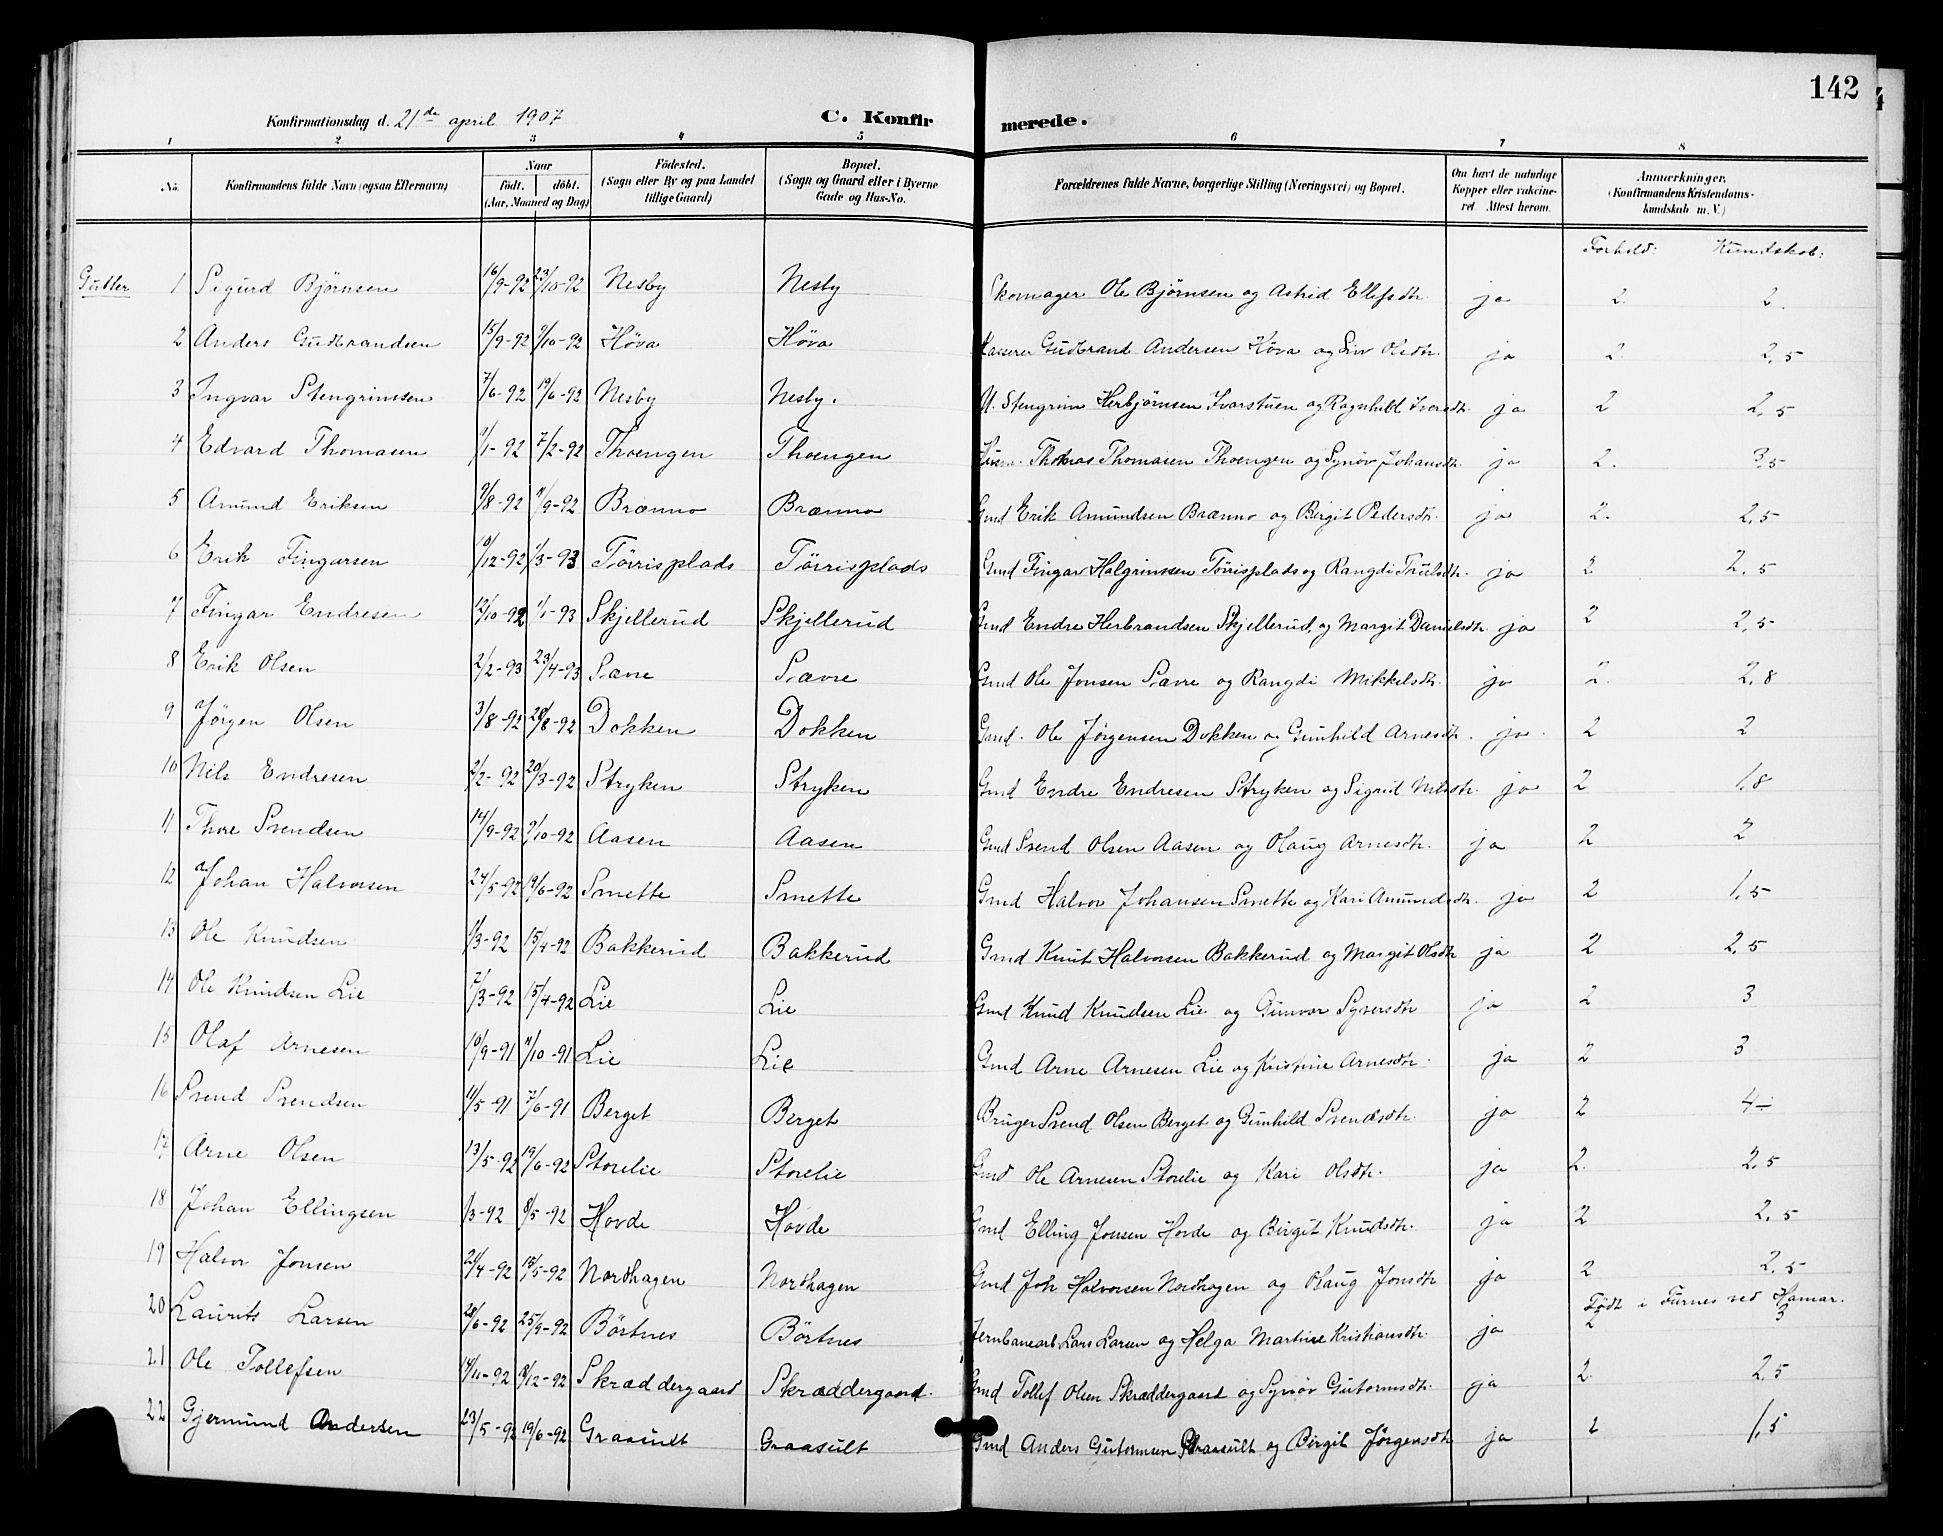 142
Konfirmationsdag d. 21de april 1907 C. Konfirmerede.
1 2 3 4 5 6 7 8
No. Konfirmandens fulde Navn (ogsaa Efternavn) Naar født. døbt. (Aar, Maaned og Dag) Fødested. (Sogn eller By og paa Landet tillige Gaard) Bopæl. (Sogn og Gaard eller i Byerne Gade og Hus-No. Forældrenes fulde Navne, borgerlige Stilling (Næringsvei) og Bopæl. Om havt de naturlige Kopper eller vakcineret. Attest herom. Anmærkninger. (Konfirmandens Kristendomskundskab m. V.)
Forhold: Kundskab:
Gutter 1 Sigurd Bjørnsen 16/9-92 23/10-92 Nesby Nesby Skomager Ole Bjørnsen og Astrid Ellefsdtr. ja 2. 2.
2 Anders Gudbrandsen 15/9-92 9/10-92 Høva Høva Gudbrand Andersen Høva og Liv Olsdtr. ja 2 2,5
3 Ingvar Stengrimsen 7/6-92 19/6-92 Nesby Nesby. Stengrim Herbjørnsen Ivarstuen og Ragnhild Iversdtr. ja 2 2,5
4 Edvard Thomasen 1/1-92 7/2-92 Thoengen Thoengen Husm. Thomas Thomasen Thoengen og Synøv Johansdtr. ja 2. 3,5
5 Amund Eriksen 9/8-92 11/9-92 Brænno Brænno Gmd Erik Amundsen Brænno og Birgit Pedersdtr. ja 2. 2,5
6 Erik Fingarsen 10/12-92 1/3-93 Tørrisplads Tørrisplads Gmd Fingar Halgrimsen Tørrisplads og Rangdi Trulsdtr. ja 2 2,5
7 Fingar Endresen 12/10-92 1/1-93 Skjellerud Skjellerud Gmd Endre Herbrandsen Skjellerud og Margit Danielsdtr. ja 2 2,5
8 Erik Olsen 2/2-93 23/4-93 Sævre Sævre Gmd Ole Jonsen Sævre og Rangdi Mikkelsdtr. ja 2. 2,8
9 Jørgen Olsen 3/8-92 28/8-92 Dokken Dokken Gmd. Ole Jørgensen Dokken og Gunhild Arnesdtr. ja. 2 2
10 Nils Endresen 2/2-92 20/3-92 Stryken Stryken Gmd Endre Endresen Stryken og Sigrid Nilsdtr. ja 2 1,8
11 Thore Svendsen 14/9-92 9/10-92 Aasen Aasen Gmd Svend Olsen Aasen og Olaug Arnesdtr. ja 2 2
12 Johan Halvorsen 24/5-92 19/6-92 Smette Smette Gmd Halvor Johansen Smette og Kari Amundsdtr. ja 2 1,5
13 Ole Knudsen 1/3-92 15/4-92 Bakkerud Bakkerud Gmd Knut Halvorsen Bakkerud og Margit Olsdtr ja 2 2,5
14 Ole Knudsen Lie 7/3-92 15/4-92 Lie Lie Gmd Knud Knudsen Lie og Gunvor Syversdtr ja 2 3
15 Olaf Arnesen 10/9-91 11/10-91 Lie Lie Gmd Arne Arnesen Lie og Kristine Arnesdtr. ja 2 3
16 Svend Svendsen 11/5-91 7/6-91 Berget Berget Bruger Svend Olsen Berget og Gunhild Svendsdtr. ja 2 4÷
17 Arne Olsen 13/5-92 19/6-92 Storelie Storelie Gmd Ole Arnesen Storelie og Kari Olsdtr. ja 2. 2,5
18 Johan Ellingsen 1/3-92 8/5-92 Hovde Hovde Gmd Elling Jonsen Hovde og Birgit Knudsdtr. ja 2 2,5
19 Halvor Jonsen 21/4-92 15/5-92 Nordhagen Nordhagen Gmd Joh Halvorsen Nordhagen og Olaug Jonsdtr ja 2 2,5
Født i Furnes ved Hamar.
20 Laurits Larsen 28/6-92 25/9-92 Børtnes Børtnes Jernbanearb. Lars Larsen og Helga Martine Kristiansdtr. ja 2 3
21 Ole Tollefsen 14/11-92 18/12-92 Skræddergaard Skræddergaard. Gmd Tollef Olsen Skræddergaard og Synøv Gutormsdtr. ja 2. 2,5
22 Gjermund Andersen 23/5-92 19/6-92 Graasult Graasult Gmd Anders Gutormsen Graasult og Birgit Jørgensdtr ja 2 1,5